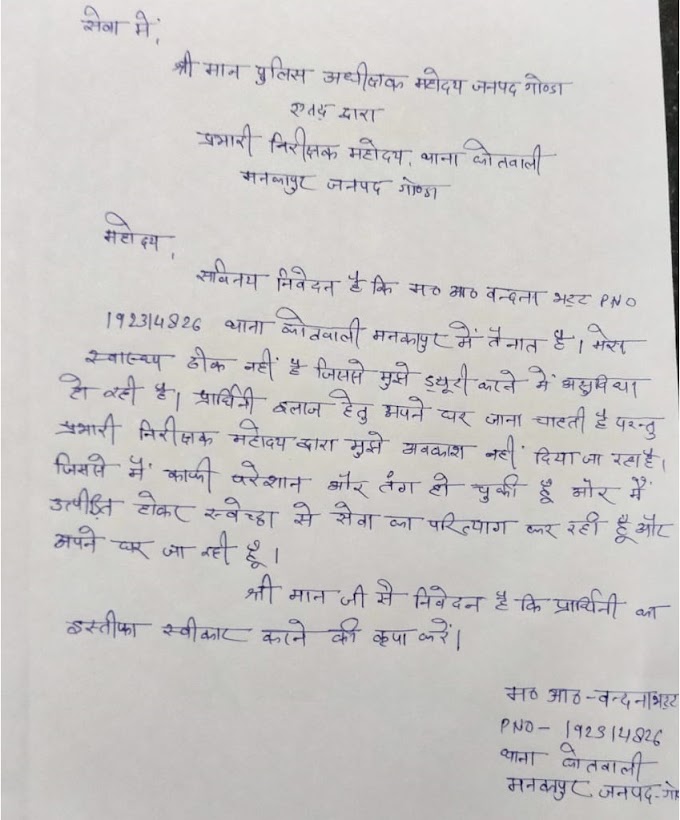 सेवा में,
श्री मान पुलिस अधीक्षक महोदय जनपद गोण्डा
एतद द्वारा
प्रभारी निरीक्षक महोदय, थाना कोतवाली
मनकापुर जनपद गोण्डा
महोदय,
सविनय निवेदन है कि म० आ० वन्दना भट्ट PNO
192314826 थाना कोतवाली मनकापुर में तैनात है। मेरा
स्वास्थ्य ठीक नहीं है जिससे मुझे ड्यूटी करने में असुविधा
हो रही है। प्रार्थिनी इलाज हेतु अपने घर जाना चाहती है परन्तु
प्रभारी निरीक्षक महोदय द्वारा मुझे अवकाश नहीं दिया जा रहा है।
जिससे मैं काफी परेशान और तंग हो चुकी हूँ और मैं
उत्पीड़ित होकर स्वेच्छा से सेवा का परित्याग कर रही हूँ और
अपने घर जा रही हूँ।
श्री मान जी से निवेदन है कि प्रार्थिनी का
इस्तीफा स्वीकार करने की कृपा करें।
म० आ०-वन्दना भट्ट
PNO- 192314826
थाना कोतवाली
मनकापुर जनपद-गो